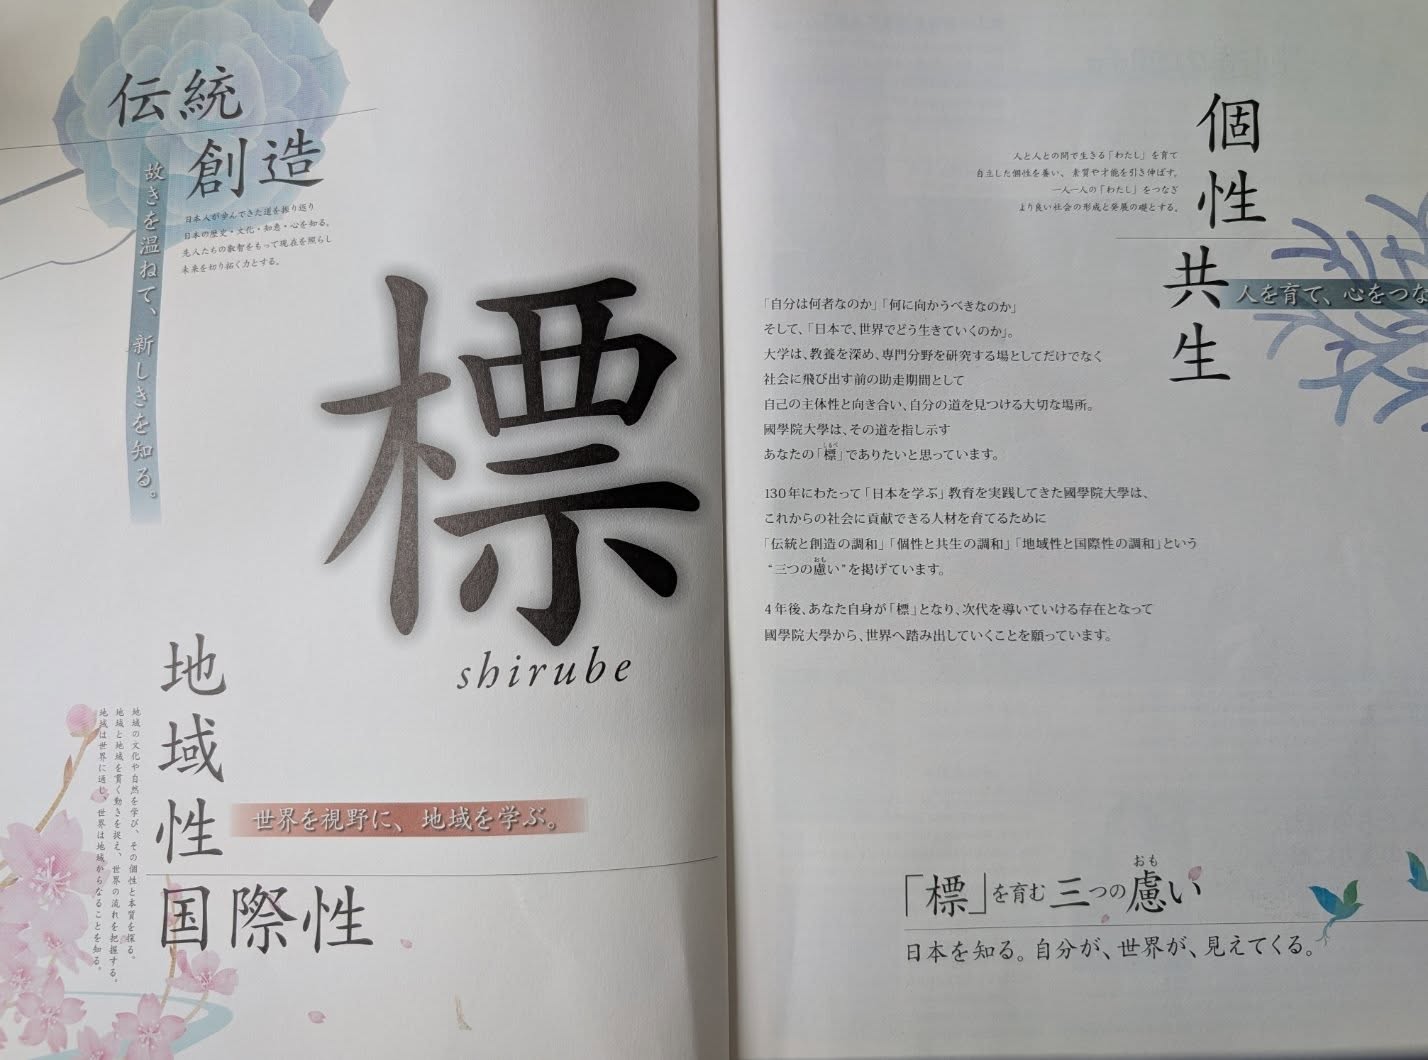 伝統
創造
故きを温ねて、新しきを知る。
日本人が歩んできた道を振り返り
日本の歴史・文化・知恵・心を知る。
先人たちの叡智をもって現在を照らし
未来を切り拓く力とする。
標
shirube
地域性
国際性
世界を視野に、地域を学ぶ。
地域の文化や自然を学び、その個性と本質を探る。
地域と地域を貫く動きを捉え、世界の流れを把握する。
地域は世界に通じ、世界は地域からなることを知る。
個性
共生
人を育て、心をつな
人と人との間で生きる「わたし」を育て
自立した個性を養い、素質や才能を引き伸ばす。
一人一人の「わたし」をつなぎ
より良い社会の形成と発展の礎とする。
「自分は何者なのか」「何に向かうべきなのか」
そして、「日本で、世界でどう生きていくのか」。
大学は、教養を深め、専門分野を研究する場としてだけでなく
社会に飛び出す前の助走期間として
自己の主体性と向き合い、自分の道を見つける大切な場所。
國學院大學は、その道を指し示す
しるべ
あなたの「標」でありたいと思っています。
130年にわたって「日本を学ぶ」教育を実践してきた國學院大學は、
これからの社会に貢献できる人材を育てるために
「伝統と創造の調和」「個性と共生の調和」「地域性と国際性の調和」という
おも
“三つの慮い”を掲げています。
4年後、あなた自身が「標」となり、次代を導いていける存在となって
國學院大學から、世界へ踏み出していくことを願っています。
おも
「標」を育む三つの慮い
日本を知る。自分が、世界が、見えてくる。